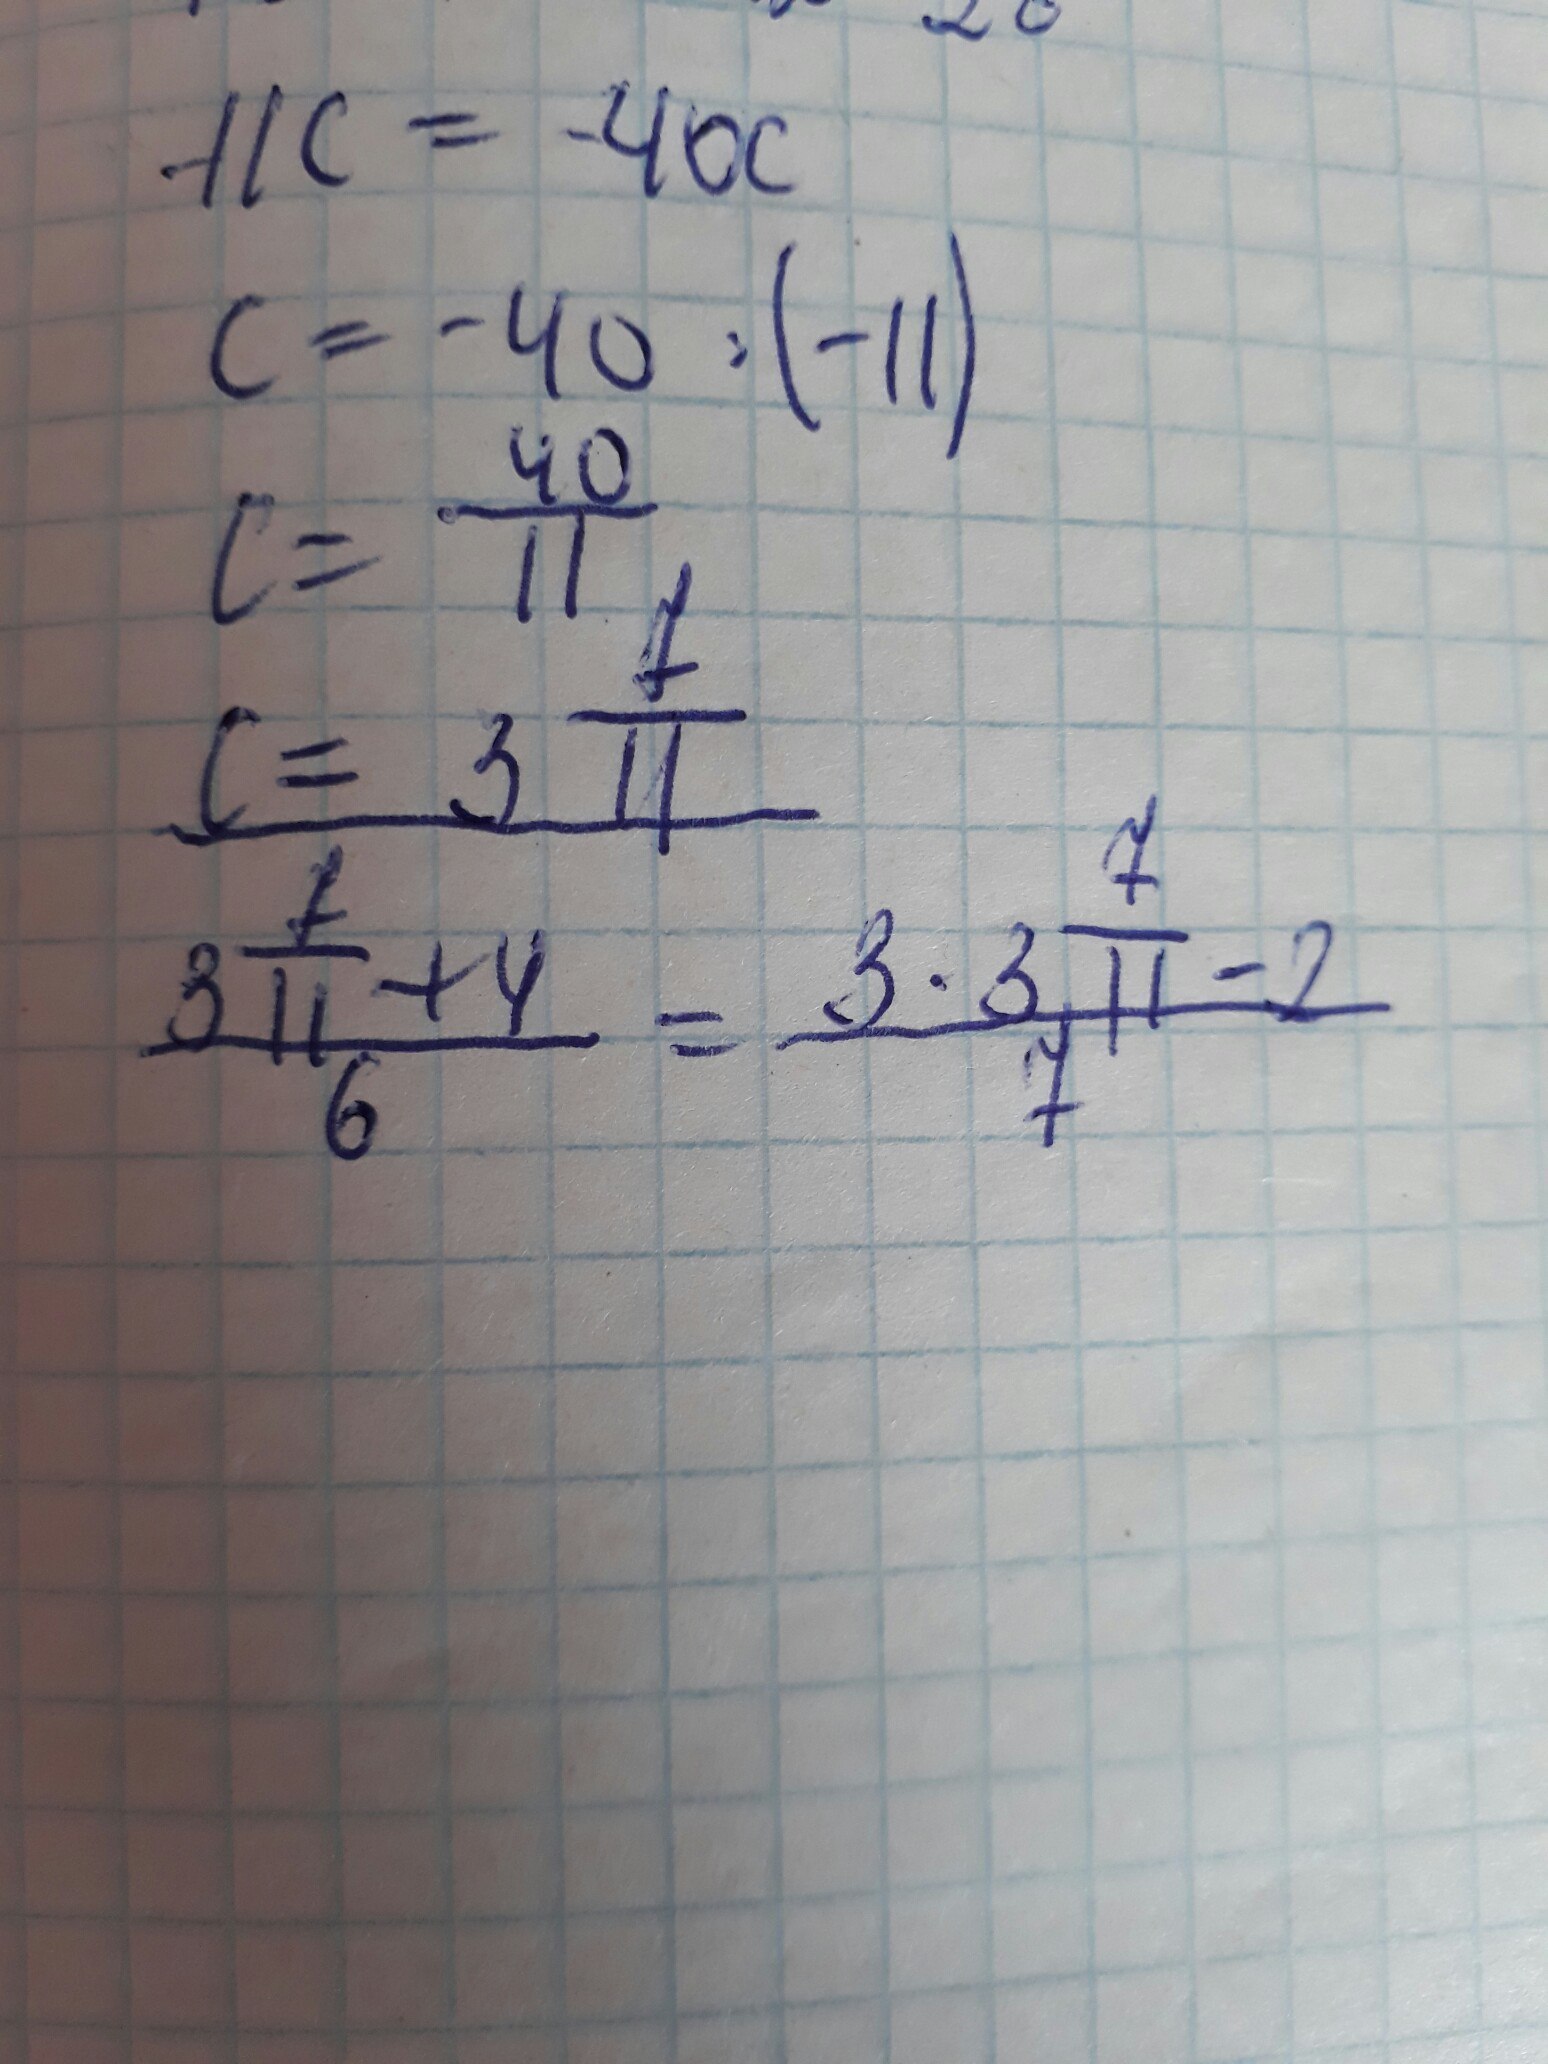 20
-11C = -40C
C = -40 : (-11)
C = 40/11
C = 3 7/11
(3 7/11 + 4)/6 = (3 · 3 7/11 - 2)/7